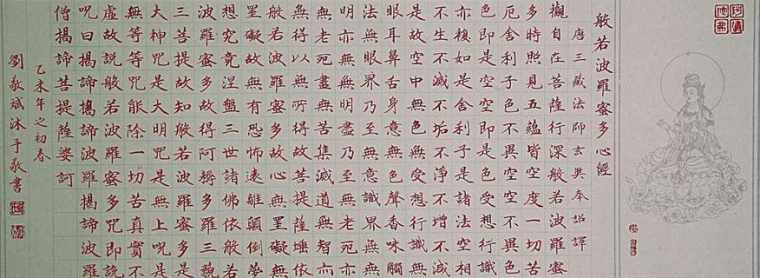 般若波羅蜜多心經
唐三藏法師玄奘奉詔譯
觀自在菩薩行深般若波羅蜜
多時照見五蘊皆空度一切苦
厄舍利子色不異空空不異色
色即是空空即是色受想行識
亦復如是舍利子是諸法空相
不生不滅不垢不淨不增不減
是故空中無色無受想行識無
眼耳鼻舌身意無色聲香味觸
法無眼界乃至無意識界無無
明亦無無明盡乃至無老死亦
無老死盡無苦集滅道無智亦
無得以無所得故菩提薩埵依
般若波羅蜜多故心無罣礙無
罣礙故無有恐怖遠離顛倒夢
想究竟涅槃三世諸佛依般若
波羅蜜多故得阿耨多羅三藐
三菩提故知般若波羅蜜多是
大神咒是大明咒是無上咒是
無等等咒能除一切苦真實不
虛故說般若波羅蜜多咒即說
咒曰揭諦揭諦波羅揭諦波羅
僧揭諦菩提薩婆訶
乙未年之初春
劉敬斌沐手敬書